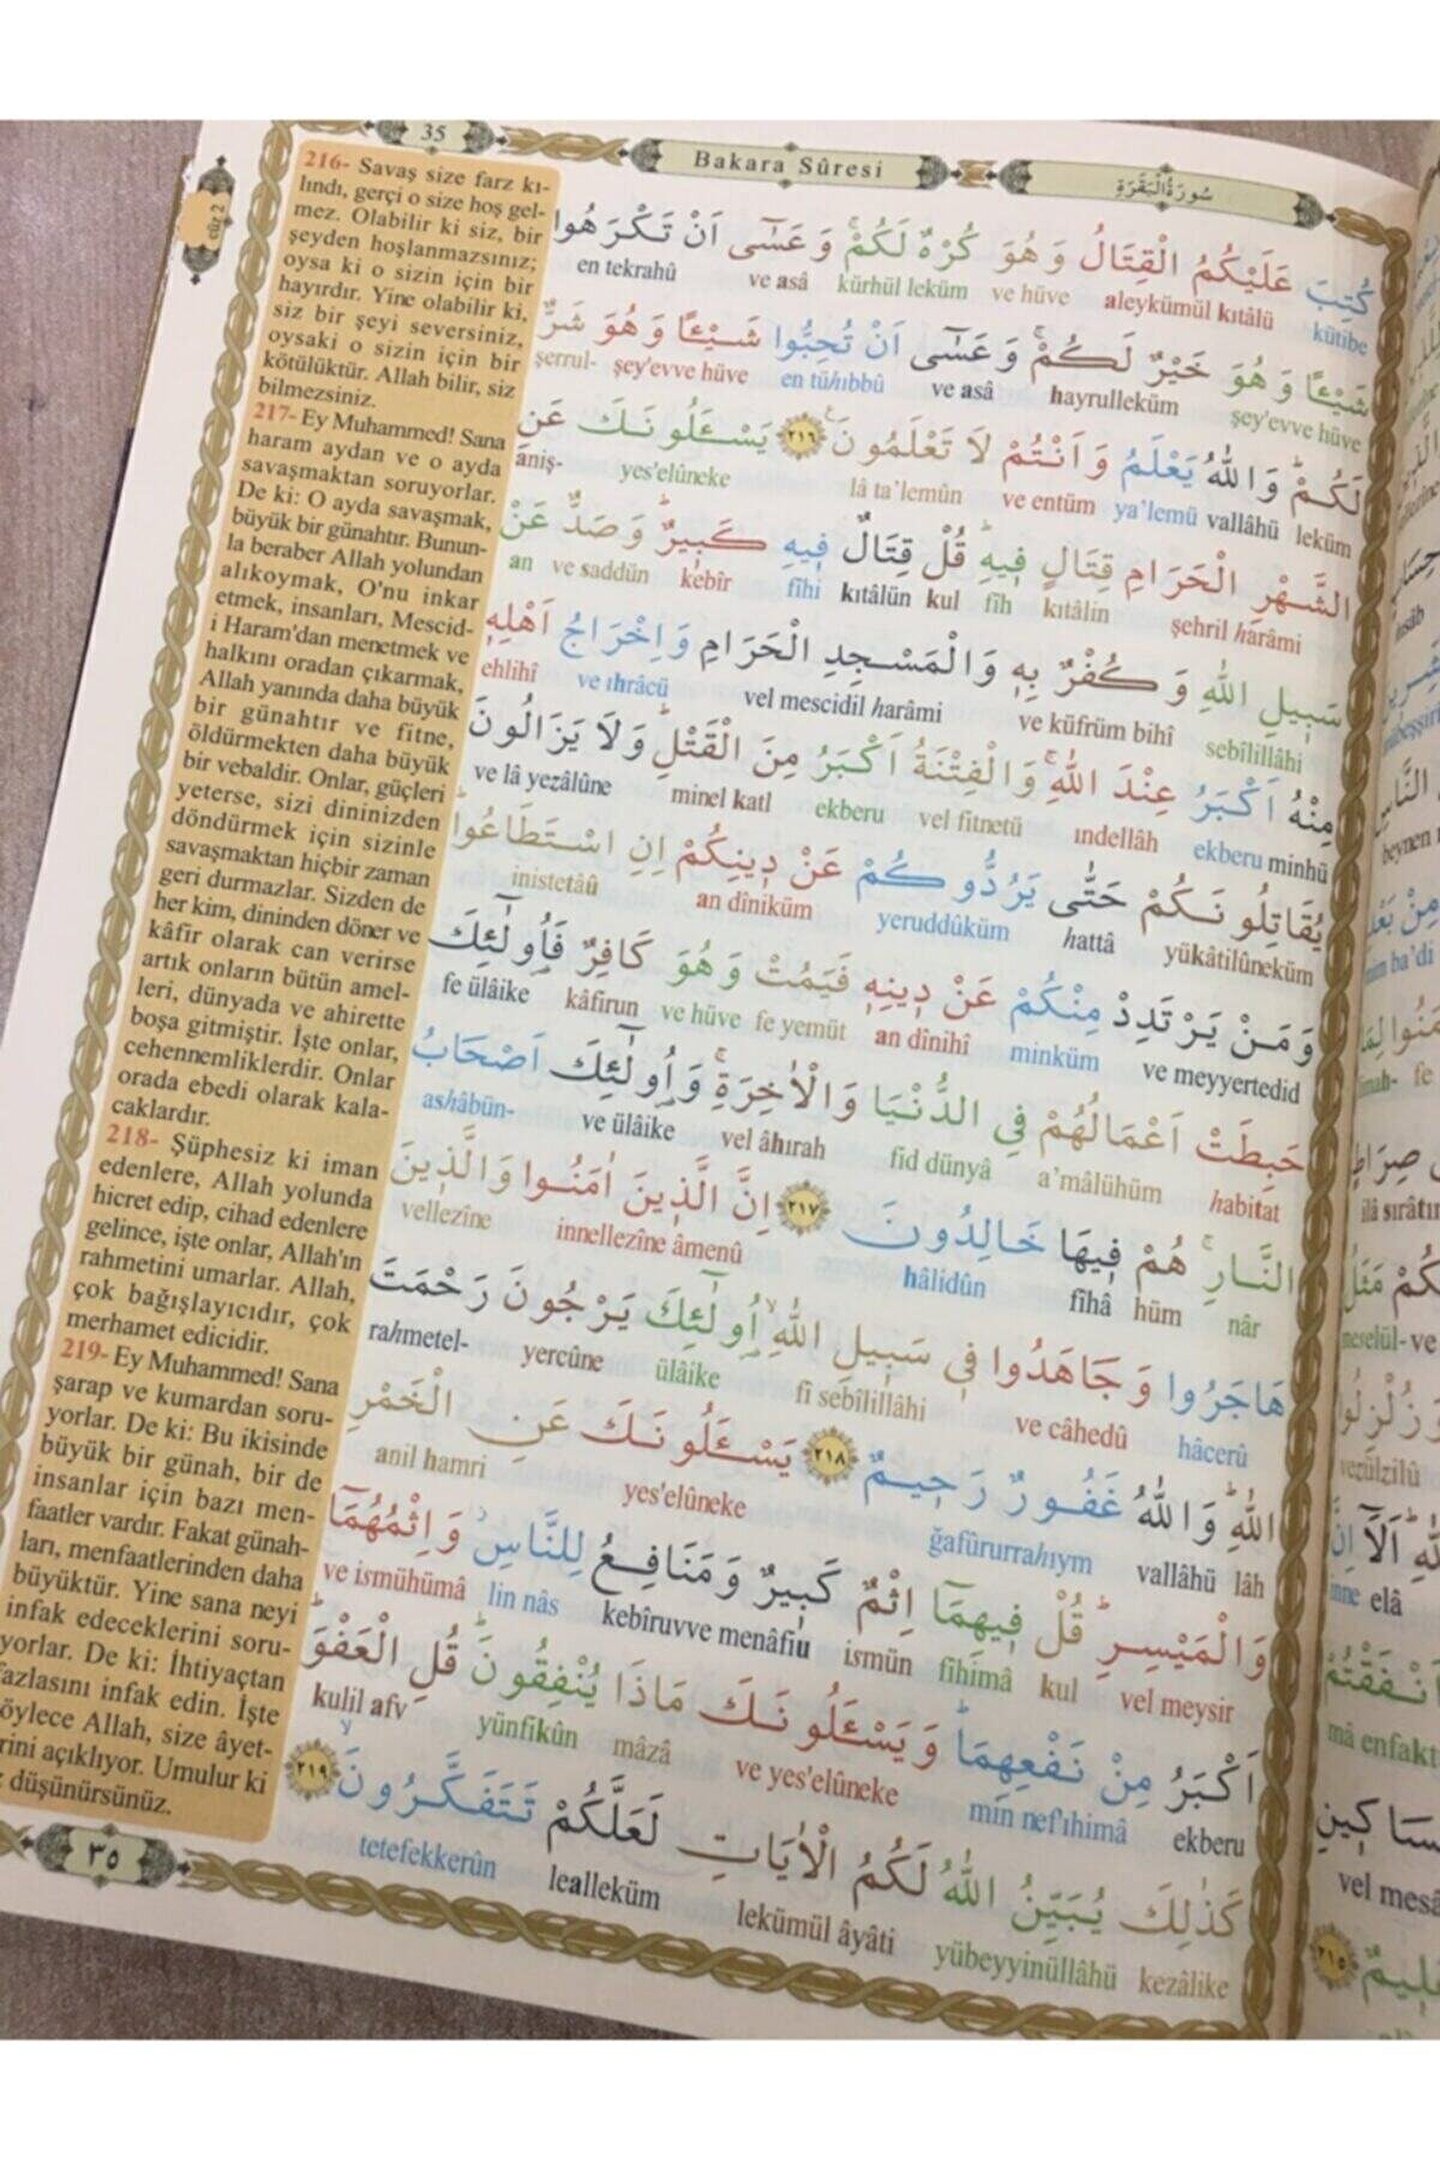 35
Bakara Sûresi
سُورَةُ الْبَقَرَةِ
cüz 2
216- Savaş size farz kı-
lındı, gerçi o size hoş gel-
mez. Olabilir ki siz, bir
şeyden hoşlanmazsınız;
oysa ki o sizin için bir
hayırdır. Yine olabilir ki,
siz bir şeyi seversiniz,
oysaki o sizin için bir
kötülüktür. Allah bilir, siz
bilmezsiniz.
217- Ey Muhammed! Sana
haram aydan ve o ayda
savaşmaktan soruyorlar.
De ki: O ayda savaşmak,
büyük bir günahtır. Bunun-
la beraber Allah yolundan
alıkoymak, O'nu inkar
etmek, insanları, Mescid-
i Haram'dan menetmek ve
halkını oradan çıkarmak,
Allah yanında daha büyük
bir günahtır ve fitne,
öldürmekten daha büyük
bir vebaldir. Onlar, güçleri
yeterse, sizi dininizden
döndürmek için sizinle
savaşmaktan hiçbir zaman
geri durmazlar. Sizden de
her kim, dininden döner ve
kâfir olarak can verirse
artık onların bütün amel-
leri, dünyada ve ahirette
boşa gitmiştir. İşte onlar,
cehennemliklerdir. Onlar
orada ebedi olarak kala-
caklardır.
218- Şüphesiz ki iman
edenlere, Allah yolunda
hicret edip, cihad edenlere
gelince, işte onlar, Allah'ın
rahmetini umarlar. Allah,
çok bağışlayıcıdır, çok
merhamet edicidir.
219- Ey Muhammed! Sana
şarap ve kumardan soru-
yorlar. De ki: Bu ikisinde
büyük bir günah, bir de
insanlar için bazı men-
faatler vardır. Fakat günah-
ları, menfaatlerinden daha
büyüktür. Yine sana neyi
infak edeceklerini soru-
yorlar. De ki: İhtiyaçtan
fazlasını infak edin. İşte
öylece Allah, size âyet-
rini açıklıyor. Umulur ki
düşünürsünüz.
كُتِبَ عَلَيْكُمُ الْقِتَالُ وَهُوَ كُرْهٌ لَكُمْۚ وَعَسٰٓى اَنْ تَكْرَهُوا
kütibe aleykümül kıtâlü ve hüve kürhül leküm ve asâ en tekrahû
شَيْـًٔا وَهُوَ خَيْرٌ لَكُمْۚ وَعَسٰٓى اَنْ تُحِبُّوا شَيْـًٔا وَهُوَ شَرٌّ
şey'evve hüve hayrulleküm ve asâ en tühıbbû şey'evve hüve şerrul-
لَكُمْۜ وَاللّٰهُ يَعْلَمُ وَاَنْتُمْ لَا تَعْلَمُونَ۟ ٢١٦ يَسْـَٔلُونَكَ عَنِ
leküm vallâhü ya'lemü ve entüm lâ ta'lemûn yes'elûneke aniş-
الشَّهْرِ الْحَرَامِ قِتَالٍ ف۪يهِۜ قُلْ قِتَالٌ ف۪يهِ كَب۪يرٌۜ وَصَدٌّ عَنْ
şehril harâmi kıtâlin fîh kul kıtâlün fîhi kebîr ve saddün an
سَب۪يلِ اللّٰهِ وَكُفْرٌ بِه۪ وَالْمَسْجِدِ الْحَرَامِ وَاِخْرَاجُ اَهْلِه۪
sebîlillâhi ve küfrüm bihî vel mescidil harâmi ve ıhrâcü ehlihî
مِنْهُ اَكْبَرُ عِنْدَ اللّٰهِۚ وَالْفِتْنَةُ اَكْبَرُ مِنَ الْقَتْلِۜ وَلَا يَزَالُونَ
minhü ekberu ındellâh vel fitnetü ekberu minel katl ve lâ yezâlûne
يُقَاتِلُونَكُمْ حَتّٰى يَرُدُّوكُمْ عَنْ د۪ينِكُمْ اِنِ اسْتَطَاعُواۜ
yükâtilûneküm hattâ yeruddûküm an dîniküm inistetâû
وَمَنْ يَرْتَدِدْ مِنْكُمْ عَنْ د۪ينِه۪ فَيَمُتْ وَهُوَ كَافِرٌ فَاُو۬لٰٓئِكَ
ve meyyertedid minküm an dînihî fe yemüt ve hüve kâfirun fe ülâike
حَبِطَتْ اَعْمَالُهُمْ فِي الدُّنْيَا وَالْاٰخِرَةِۚ وَاُو۬لٰٓئِكَ اَصْحَابُ
habitat a'mâlühüm fid dünyâ vel âhırah ve ülâike ashâbün-
النَّارِۚ هُمْ ف۪يهَا خَالِدُونَ ٢١٧ اِنَّ الَّذ۪ينَ اٰمَنُوا وَالَّذ۪ينَ
nâr hüm fîhâ hâlidûn innellezîne âmenû vellezîne
هَاجَرُوا وَجَاهَدُوا ف۪ي سَب۪يلِ اللّٰهِۙ اُو۬لٰٓئِكَ يَرْجُونَ رَحْمَتَ
hâcerû ve câhedû fî sebîlillâhi ülâike yercûne rahmetel-
اللّٰهِۜ وَاللّٰهُ غَفُورٌ رَح۪يمٌ ٢١٨ يَسْـَٔلُونَكَ عَنِ الْخَمْرِ
lâh vallâhü ğafûrurrahıym yes'elûneke anil hamri
وَالْمَيْسِرِۜ قُلْ ف۪يهِمَٓا اِثْمٌ كَب۪يرٌ وَمَنَافِعُ لِلنَّاسِۘ وَاِثْمُهُمَٓا
vel meysir kul fîhimâ ismün kebîruvve menâfiu lin nâs ve ismühümâ
اَكْبَرُ مِنْ نَفْعِهِمَاۜ وَيَسْـَٔلُونَكَ مَاذَا يُنْفِقُونَۜ قُلِ الْعَفْوَۜ
ekberu min nef'ıhimâ ve yes'elûneke mâzâ yünfikûn kulil afv
كَذٰلِكَ يُبَيِّنُ اللّٰهُ لَكُمُ الْاٰيَاتِ لَعَلَّكُمْ تَتَفَكَّرُونَۙ ٢١٩
kezâlike yübeyyinüllâhü lekümül âyâti lealleküm tetefekkerûn
٣٥